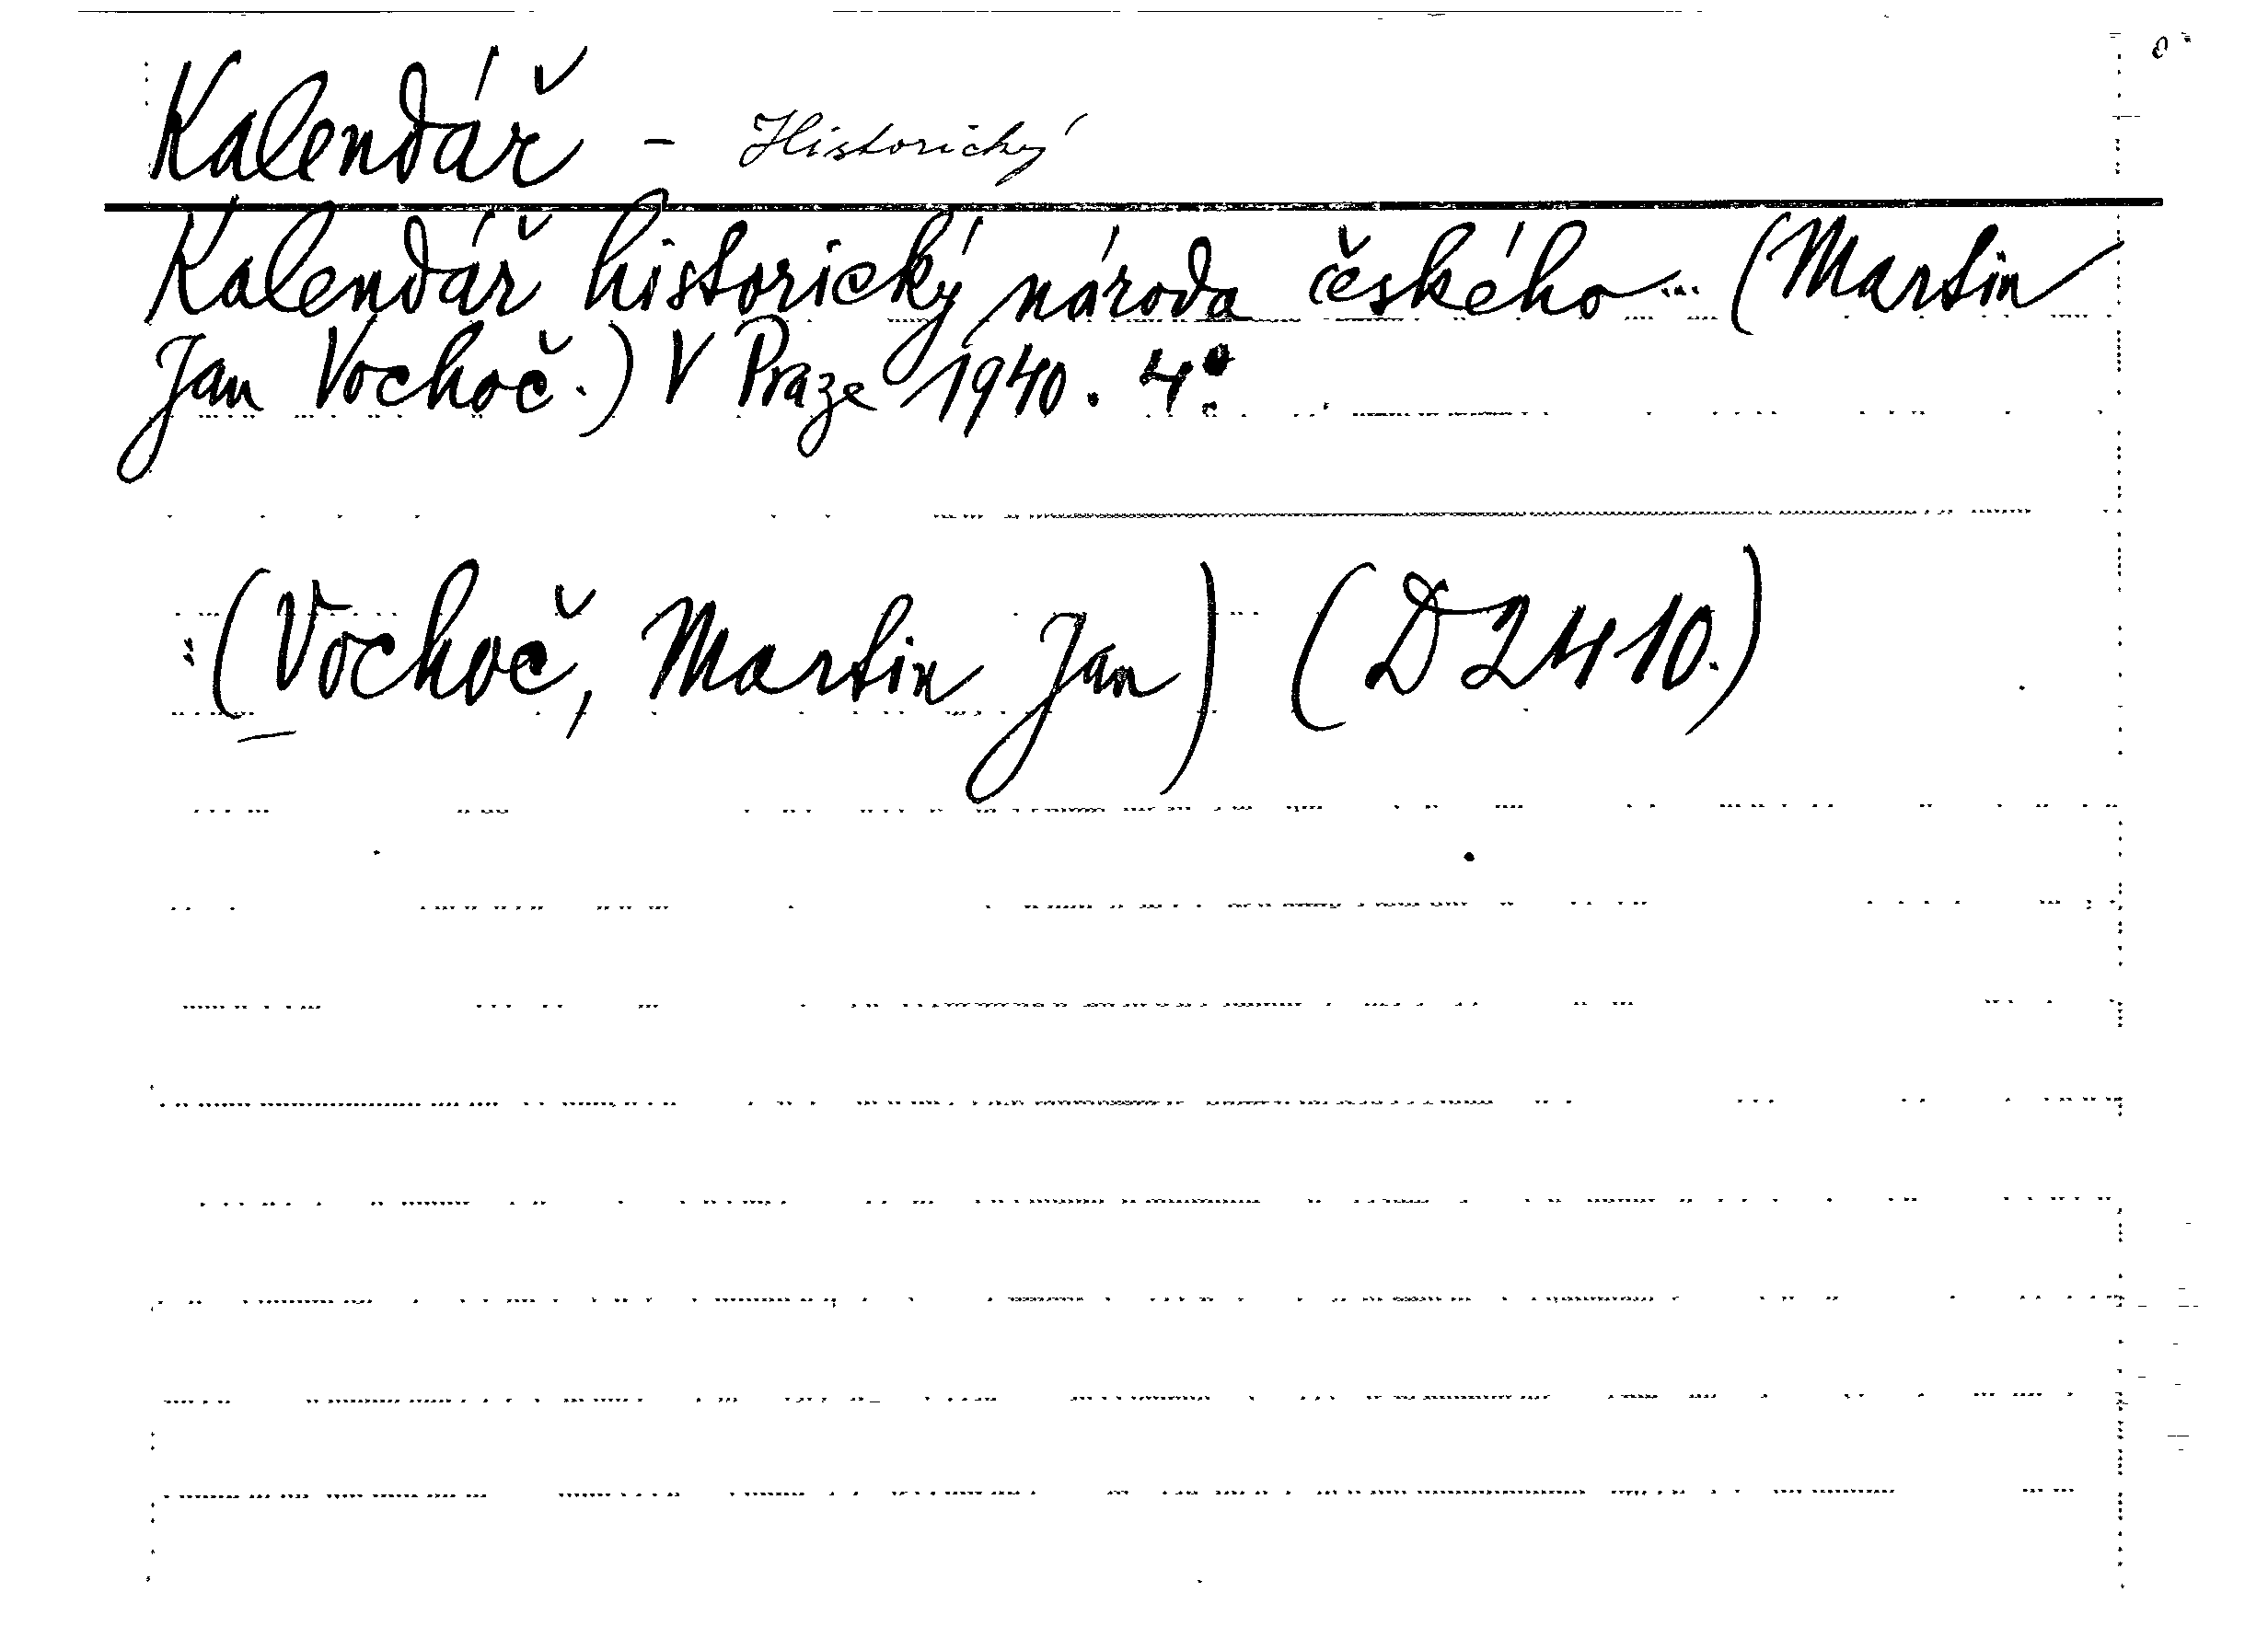 Kalendář - Historický
Kalendář historický národa českého... (Martin
Jan Vochoč.) V Praze 1940. 4°.
(Vochoč, Martin Jan) (D 2410.)